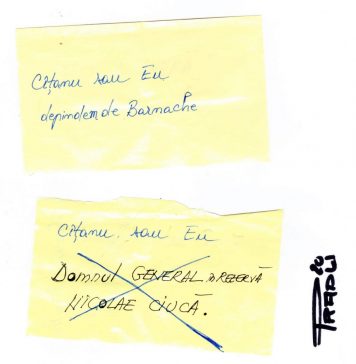 Cîțanu sau Eu
depindem de Barnache
Cîțanu sau Eu
Domnul GENERAL în REZERVĂ
NICOLAE CIUCĂ.